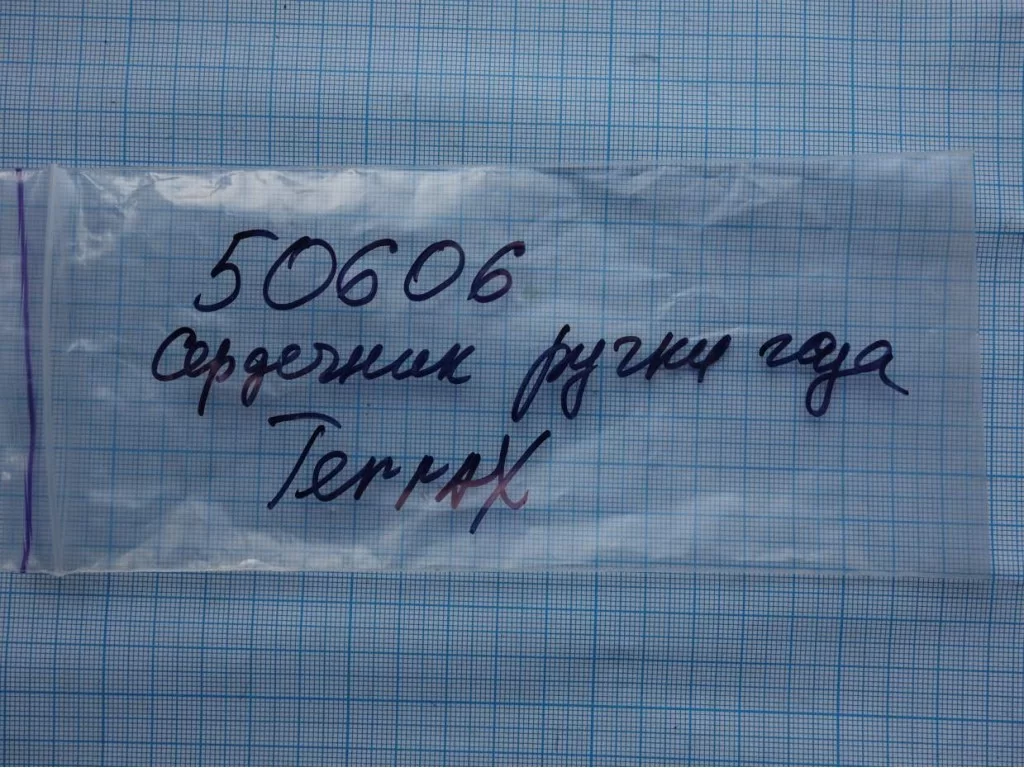 50606
Сердечник ручки газа
TerraX